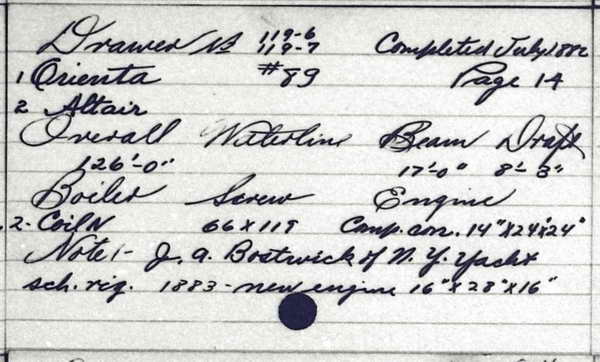 Drawer No 119-6 Completed July, 1882
119-7
1 Orienta #89 Page 14
2 Altair
Overall Waterline Beam Draft
126'-0" 17'-0" 8'-3"
Boiler Screw Engine
2- Coil N 66 x 119 Comp. con. 14" x 24" x 24"
Note:- J. A. Bostwick of N. Y. Yacht
sch. rig. 1883 - new engine 16" x 28" x 16"